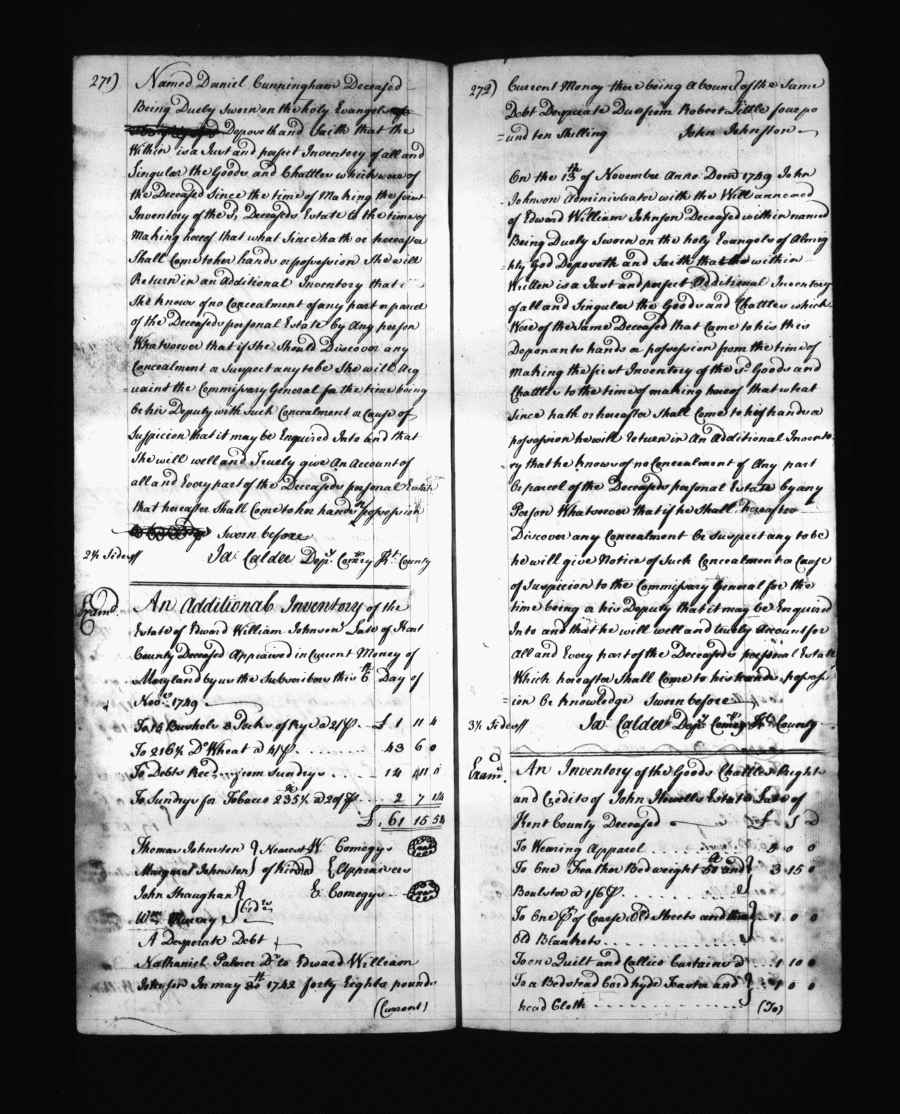 271)
Named Daniel Cunningham Deceased
Being Duely Sworn on the holy Evangels of
Deposeth and Saith that the
Within is a Just and perfect Inventory of all and
Singular the Goods and Chattles which were of
the Deceased Since the time of Making the first
Inventory of the Sd. Deceaseds Estate to the time of
Making hereof that what Since hath or hereafter
Shall Come to her hands or possession She will
Return in an Additional Inventory that
She knows of no Concealment of any part or parcel
of the Deceaseds personal Estate by Any person
Whatsoever that if She Should Discover any
Concealment or Suspect any to be She will Acq
=uaint the Commissary General for the time being
or his Deputy with Such Concealment or Cause of
Suspicion that it may be Enquired Into and that
She will well and Truely give An Account of
all and Every part of the Deceaseds personal Estate
that hereafter Shall Come to her hands or possession
Sworn before
2½ Sides//
Ja: Calder Depy. Comry Kt. County
Examd.
An Additional Inventory of the
Estate of Edward William Johnson Late of Kent
County Deceased Appraised in Current Money of
Maryland by us the Subscribers this 6th Day of
Novr. 1749
To 15 Bushels 3 Pecks of Rye a 2/ ... £ 1 11 4
To 216½ Do Wheat a 4/ ... 43 6 0
To Debts Recd. from Sundrys ... 14 11 0
To Sundrys for Tobacco 235½ a 2 ... 2 7 1½
£ 61 15 5½
Thomas Johnson } Nearest W. Comegys
Margaret Johnston } of Kindred { Appraisers
John Shaughan } E: Comegys
Wm. Murray } Crds.
A Desperate Debt
Nathaniel Palmer Dr. to Edward William
Johnson In may 30th 1742 forty Eight pounds
(Current)
272)
Current Money there being a bound of the Same
Debt Desperate Due from Robert Little four po
=und ten Shilling John Johnston
On the 13th of November Anno Domi 1749 John
Johnson Administrator with the Will annexed
of Edward William Johnson Deceased within named
Being Duely Sworn on the holy Evangels of Almig
=hty God Deposeth and Saith that the within
Written is a Just and perfect Additional Inventory
of all and Singular the Goods and Chattles which
Were of the Same Deceased that Came to his this
Deponants hands or possession from the time of
Making the first Inventory of the Sd. Goods and
Chattles to the time of making hereof that what
Since hath or hereafter Shall Come to his hands or
possession he will Return in An Additional Invento
ry that he knows of no Concealment of Any part
or parcel of the Deceaseds personal Estate by any
Person Whatsoever that if he Shall hereafter
Discover any Concealment or Suspect any to be
he will give Notice of Such Concealment or Cause
of Suspicion to the Commissary General for the
time being or his Deputy that it may be Enquired
Into and that he will well and truely Account for
All and Every part of the Deceaseds personal Estate
Which hereafter Shall Come to his hands possess
=ion or knowledge Sworn before
3½ Sides//
Ja: Calder Depy. Comry Kt. County
Examd.
An Inventory of the Goods Chattles Rights
and Credits of John Howells Estate Late of
Kent County Deceased £ S D
To Wearing Apparel ... 5 0 0
To One Feather Bed weight 50 and
Boulster a 1/6 ... 3 15 0
To One pr. of Coarse Old Sheets and
Old Blankets ... 1 0 0
To one Quilt and Callico Curtains ... 1 10 0
To a Bedstead Cord hyde Teaster and
head Cloth ... 1 0 0
(To)